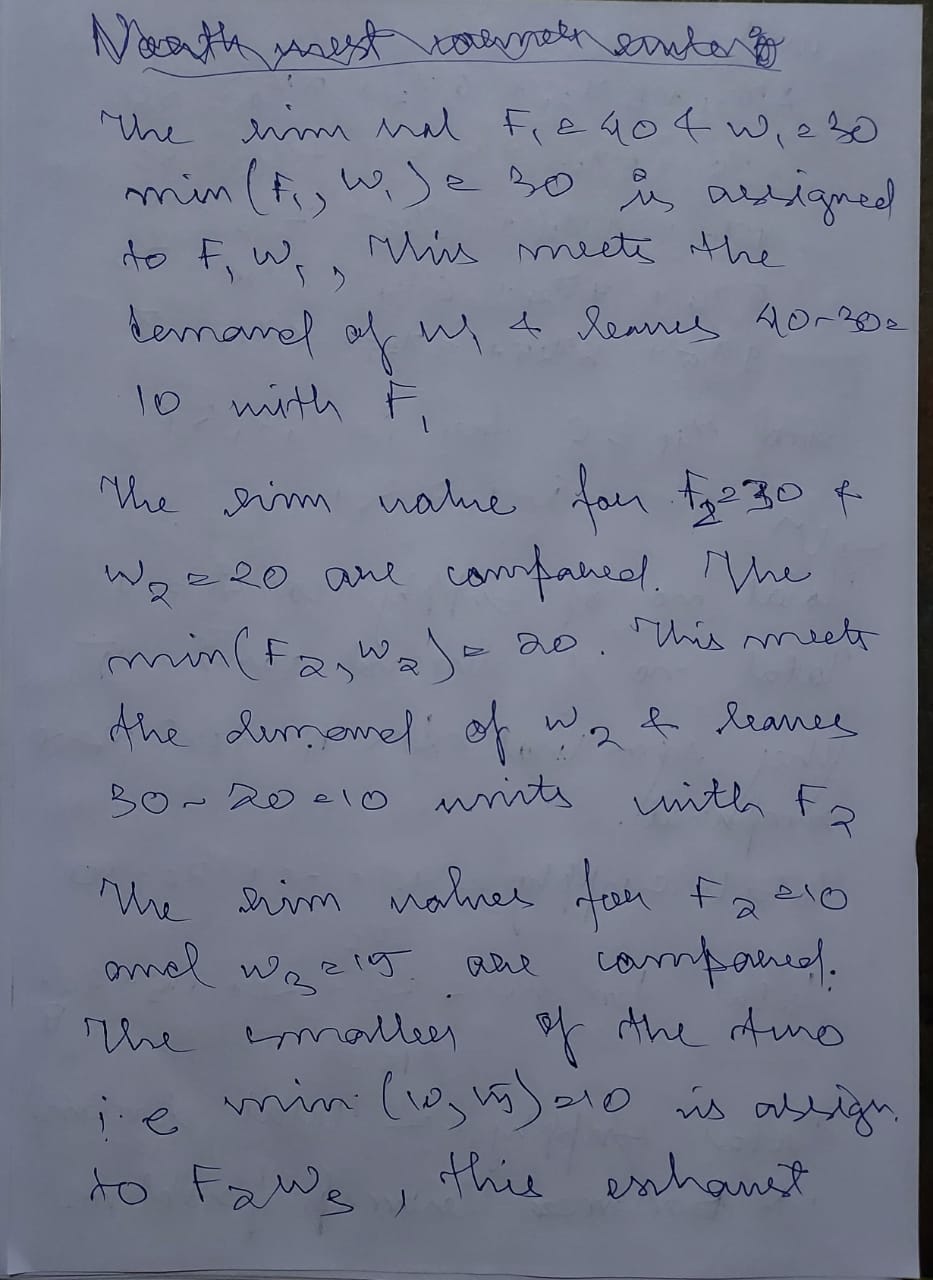 North west corner
The rim val F₁ = 40 & W₁ = 30
min(F₁, W₁) = 30 is assigned
to F₁ W₁, This meets the
demand of W₁ & leaves 40-30=
10 with F₁
The rim value for F₂=30 &
W₂ = 20 are compared. The
min(F₂, W₂) = 20. This meets
the demand of W₂ & leaves
30-20=10 units with F₂
The rim values for F₂=10
and W₃=15 are compared.
The smaller of the two
i.e min (10, 15)=10 is assign.
to F₂W₃, this exhaust